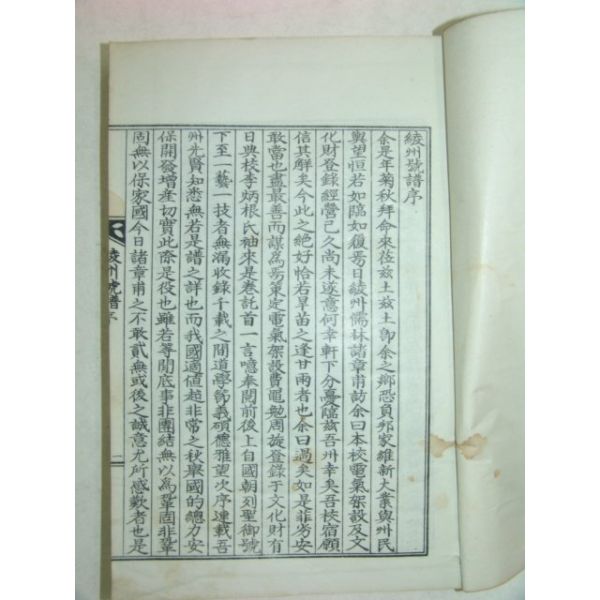 綾州號譜序
余是年菊秋拜命來莅玆土玆土卽余之鄉恐負邦家維新大業與州民
輿望恒若如臨如履焉日綾州儒林諸章甫訪余曰本校電氣架設及文
化財登錄經營已久尚未遂意何幸軒下分憂臨玆吾州幸矣吾校宿願
信其解矣今此之絶好恰若旱苗之逢甘雨者也余曰過矣如是菲劣安
敢當也盡最善而謀爲焉策定電氣架設費黽勉周旋登錄于文化財有
日典校李炳根氏袖來是卷託首一言噫奉閱前後上自國朝列聖御號
下至一藝一技者無漏收錄千載之間道學節義碩德雅望次序連載吾
州先賢知悉無若是譜之詳也而我國適値超非常之秋擧國的總力安
保開發增産切實此際是役也雖若等閒底事非團結無以爲鞏固非鞏
固無以保家國今日諸章甫之不敢貳無或後之誠意尤所感歎者也是
綾州號譜序
一